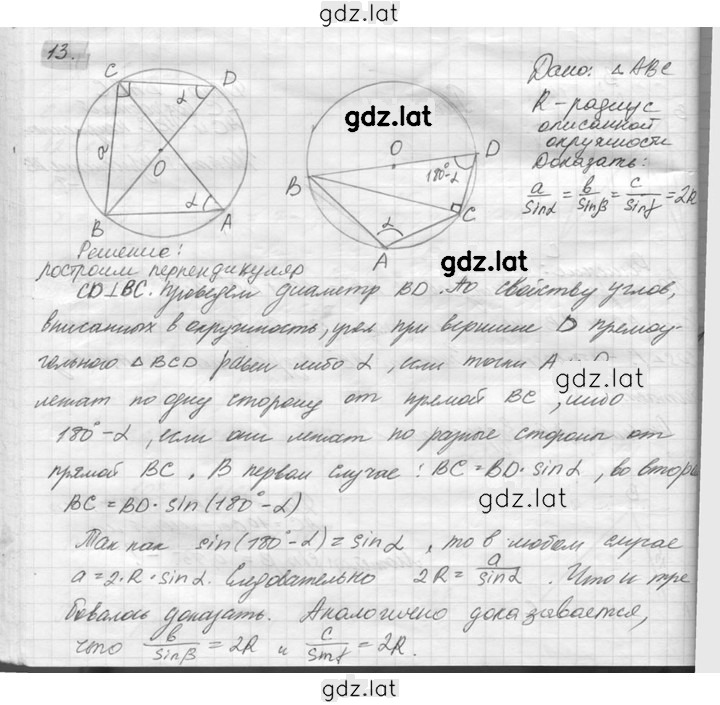 gdz.lat
13.
C D
α
a
O
α
B A
gdz.lat
O
D
180°-α
B
C
α
A
gdz.lat
Дано: △ABC
R - радиус
описанной
окружности
Доказать:
a/sinα = b/sinβ = c/sinγ = 2R
Решение:
построим перпендикуляр
CD⊥BC. Проведем диаметр BD. По свойству углов,
вписанных в окружность, угол при вершине D прямоу-
гольного △BCD равен либо α, если точки A и D
лежат по одну сторону от прямой BC, либо
gdz.lat
180°-α, если они лежат по разные стороны от
прямой BC. В первом случае: BC=BD·sinα, во втором
BC=BD·sin(180°-α)
gdz.lat
Так как sin(180°-α)=sinα, то в любом случае
a=2·R·sinα. Следовательно 2R=a/sinα. Что и тре
бовалось доказать. Аналогично доказывается,
что b/sinβ=2R и c/sinγ=2R.
gdz.lat